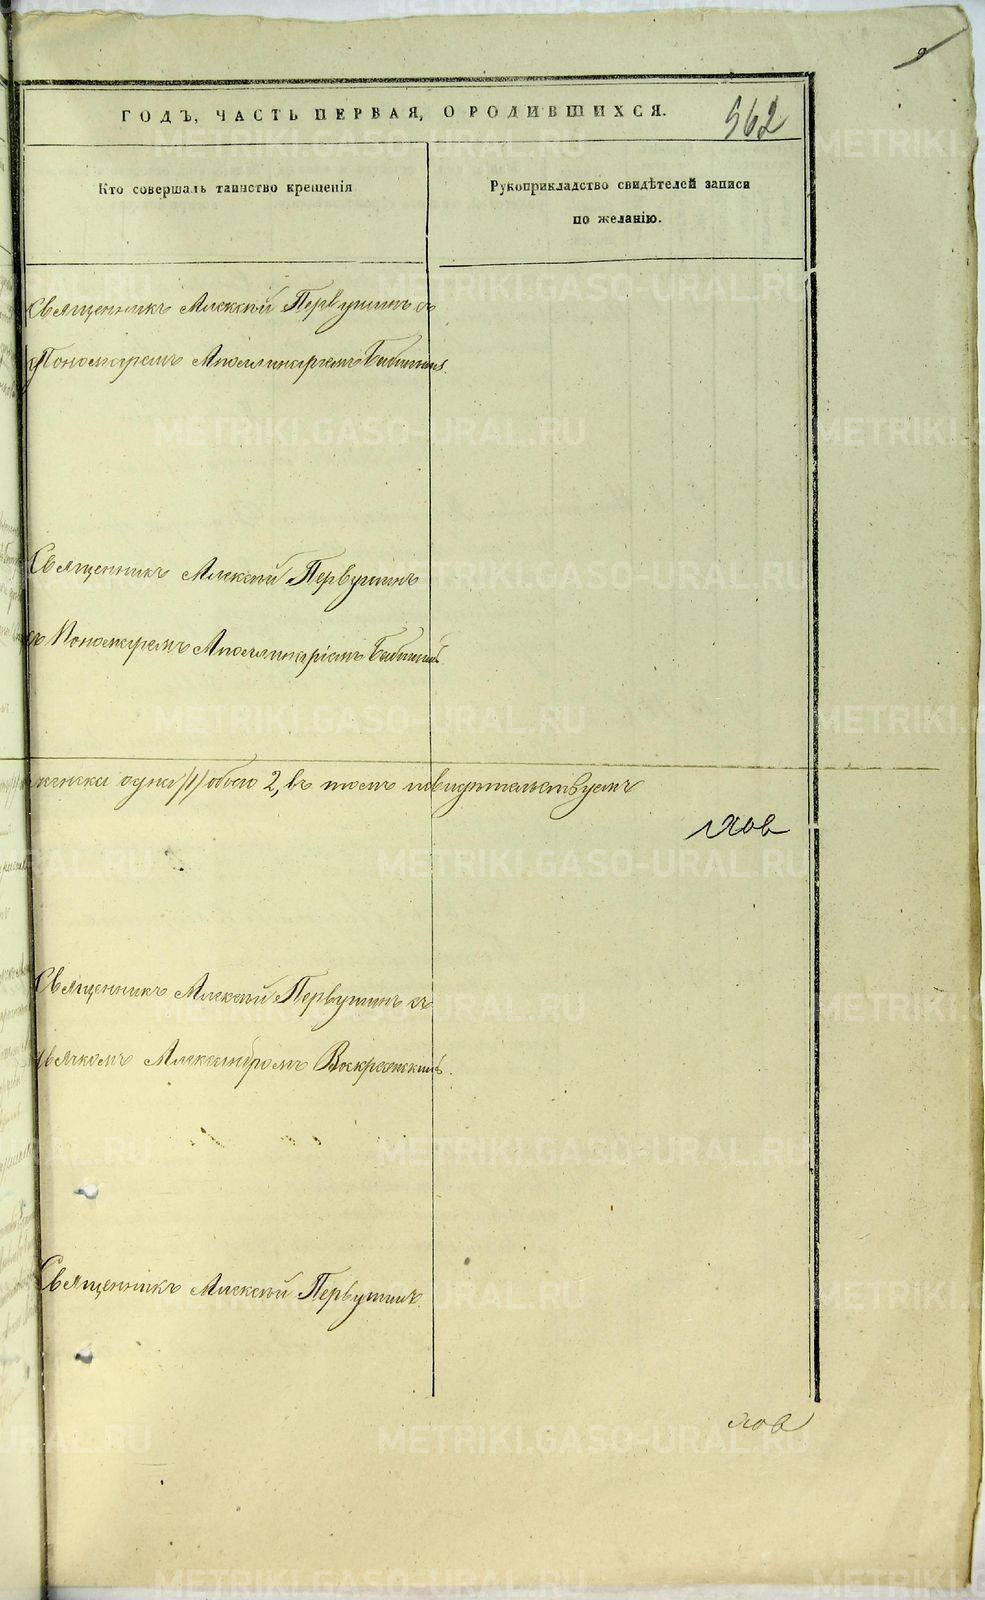 ГОДЪ, ЧАСТЬ ПЕРВАЯ, О РОДИВШИХСЯ.
562
Кто совершалъ таинство крещенія
Рукоприкладство свидѣтелей записи
по желанію.
Священникъ Алексѣй Первушинъ съ
Пономаремъ Аполлинаріемъ
Священникъ Алексѣй Первушинъ
съ Пономаремъ Аполлинаріемъ
женска одна /1/ обоего 2, въ томъ свидѣтельствуемъ
Священникъ Алексѣй Первушинъ съ
дьячкомъ Александромъ Воскресенскимъ.
Священникъ Алексѣй Первушинъ.
METRIKI.GASO-URAL.RU